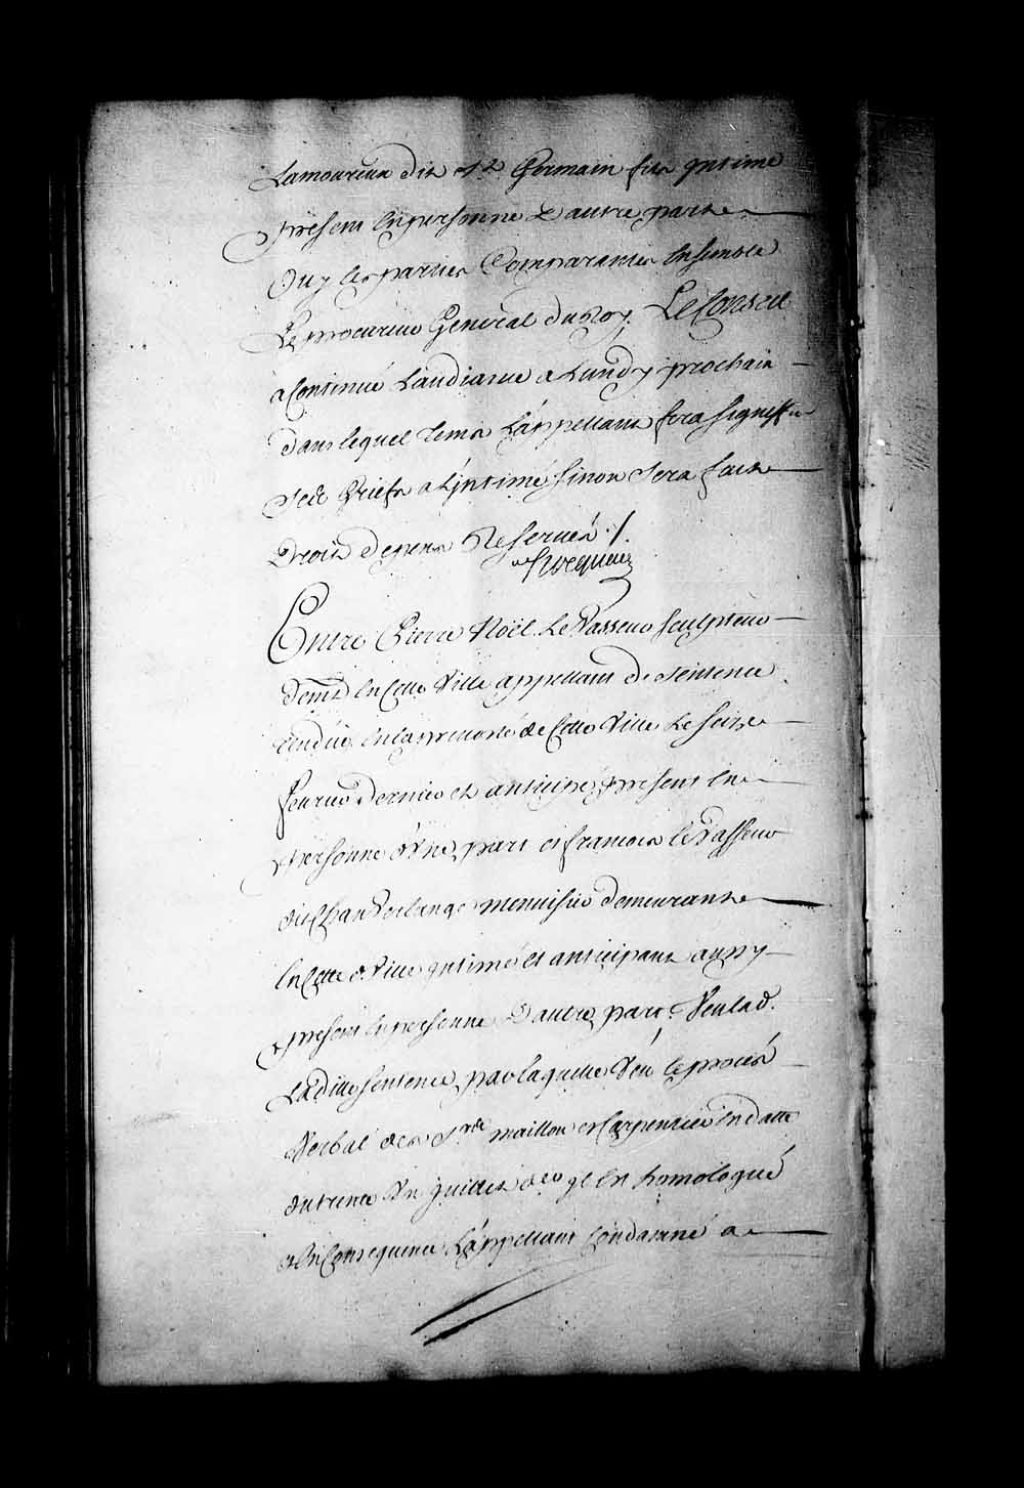 Lamoureux dit St Germain fils jntimé
present en personne D'autre part
Ouy les parties Comparantes Ensemble
Le procureur General du Roy, Le Conseil
a Continué L'audiance a Lundy prochain
dans lequel tems L'appellant fera signiffier
ses Griefs a L'jntimé sinon sera fait
Droit depens Reservés ./.
Entre Pierre Noël LeVasseur sculpteur
demt En Cette Ville appellant de sentence
rendüe En la prevosté de Cette Ville Le seize
feuvrier dernier et anticipé, present En
personne d'Une part et françois leVasseur
dit Chanverlange menuisier demeurant
En Cette Ville jntimé et anticipant aussy
present En personne D'autre part. Veu lad.
Ladite sentence par laquelle Veu le procés
Verbal des Srs maillou et Carpentier En datte
du trente Un juillet der est homologué
et En Consequence L'appellant Condamné a